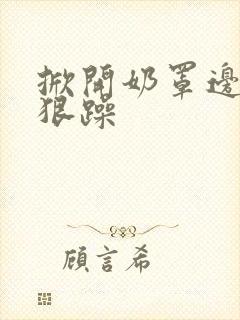 掀開奶罩邊
狠躁
顧言希